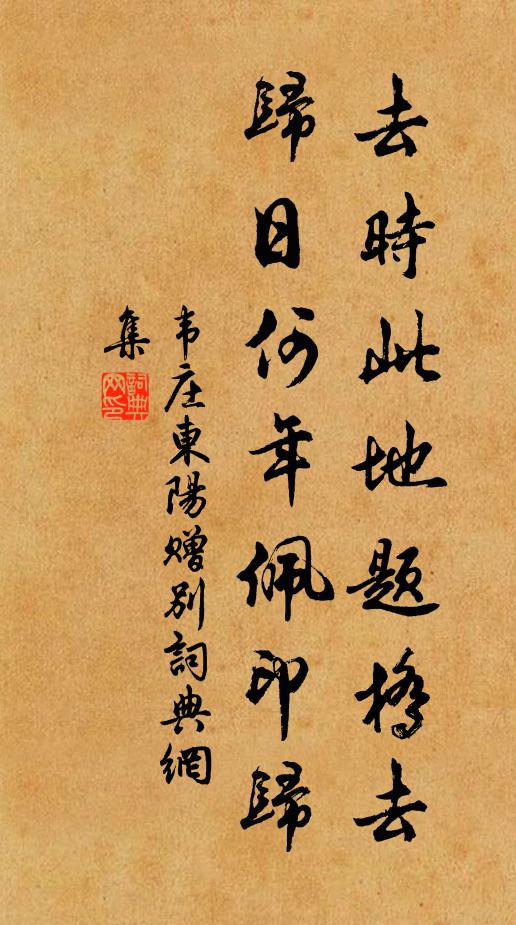 去時此地題橋去
歸日何年佩印歸
韦庄東陽贈别詞典網
集
詞典
网印